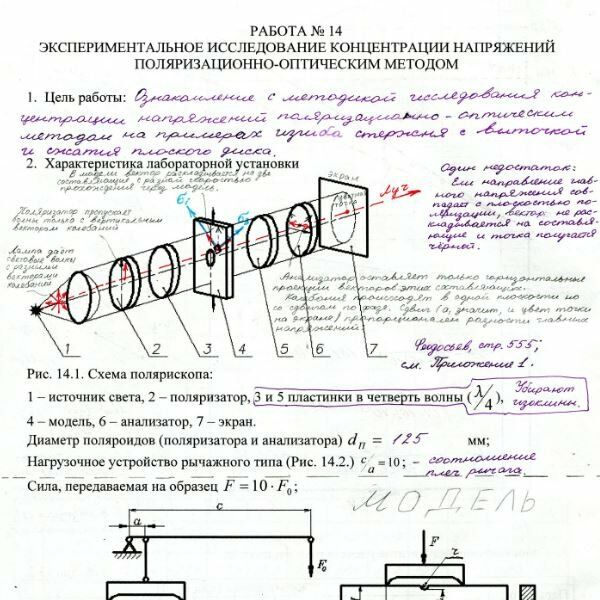 РАБОТА № 14
ЭКСПЕРИМЕНТАЛЬНОЕ ИССЛЕДОВАНИЕ КОНЦЕНТРАЦИИ НАПРЯЖЕНИЙ
ПОЛЯРИЗАЦИОННО-ОПТИЧЕСКИМ МЕТОДОМ
1. Цель работы: Ознакомление с методикой исследования кон-
центрации напряжений поляризационно-оптическим
методом на примерах изгиба стержня с выточкой
и сжатия плоского диска.
2. Характеристика лабораторной установки
В модели вектор раскладывается на две
составляющие с разной скоростью
прохождения через модель.
Поляризатор пропускает
волны только с вертикальным
вектором колебаний
Лампа даёт
световые волны
с разными
векторами
колебаний
Экран
Цветная точка
Луч
σ1
σ2
Один недостаток:
Если направление глав-
ного напряжения сов-
падает с плоскостью по-
ляризации, вектор не рас-
кладывается на составля-
ющие и точка получается
чёрной.
Анализатор оставляет только горизонтальные
проекции векторов этих составляющих.
Колебания происходят в одной плоскости но
со сдвигом по фазе. Сдвиг (а, значит, и цвет точки
на экране) пропорционален разности главных
напряжений.
1 2 3 4 5 6 7
Феодосьев, стр. 555;
см. Приложение 1.
Рис. 14.1. Схема полярископа:
1 – источник света, 2 – поляризатор, 3 и 5 пластинки в четверть волны (λ/4), Убирают изоклины.
4 – модель, 6 – анализатор, 7 – экран.
Диаметр поляроидов (поляризатора и анализатора) dп = 125 мм;
Нагрузочное устройство рычажного типа (Рис. 14.2.) c/a = 10; - соотношение
плеч рычага.
Сила, передаваемая на образец F = 10 · F0;
МОДЕЛЬ
c
a
F0
F
r